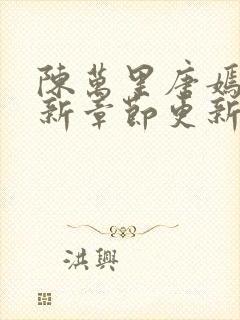 陳萬里唐嫣
新章節更新
洪興